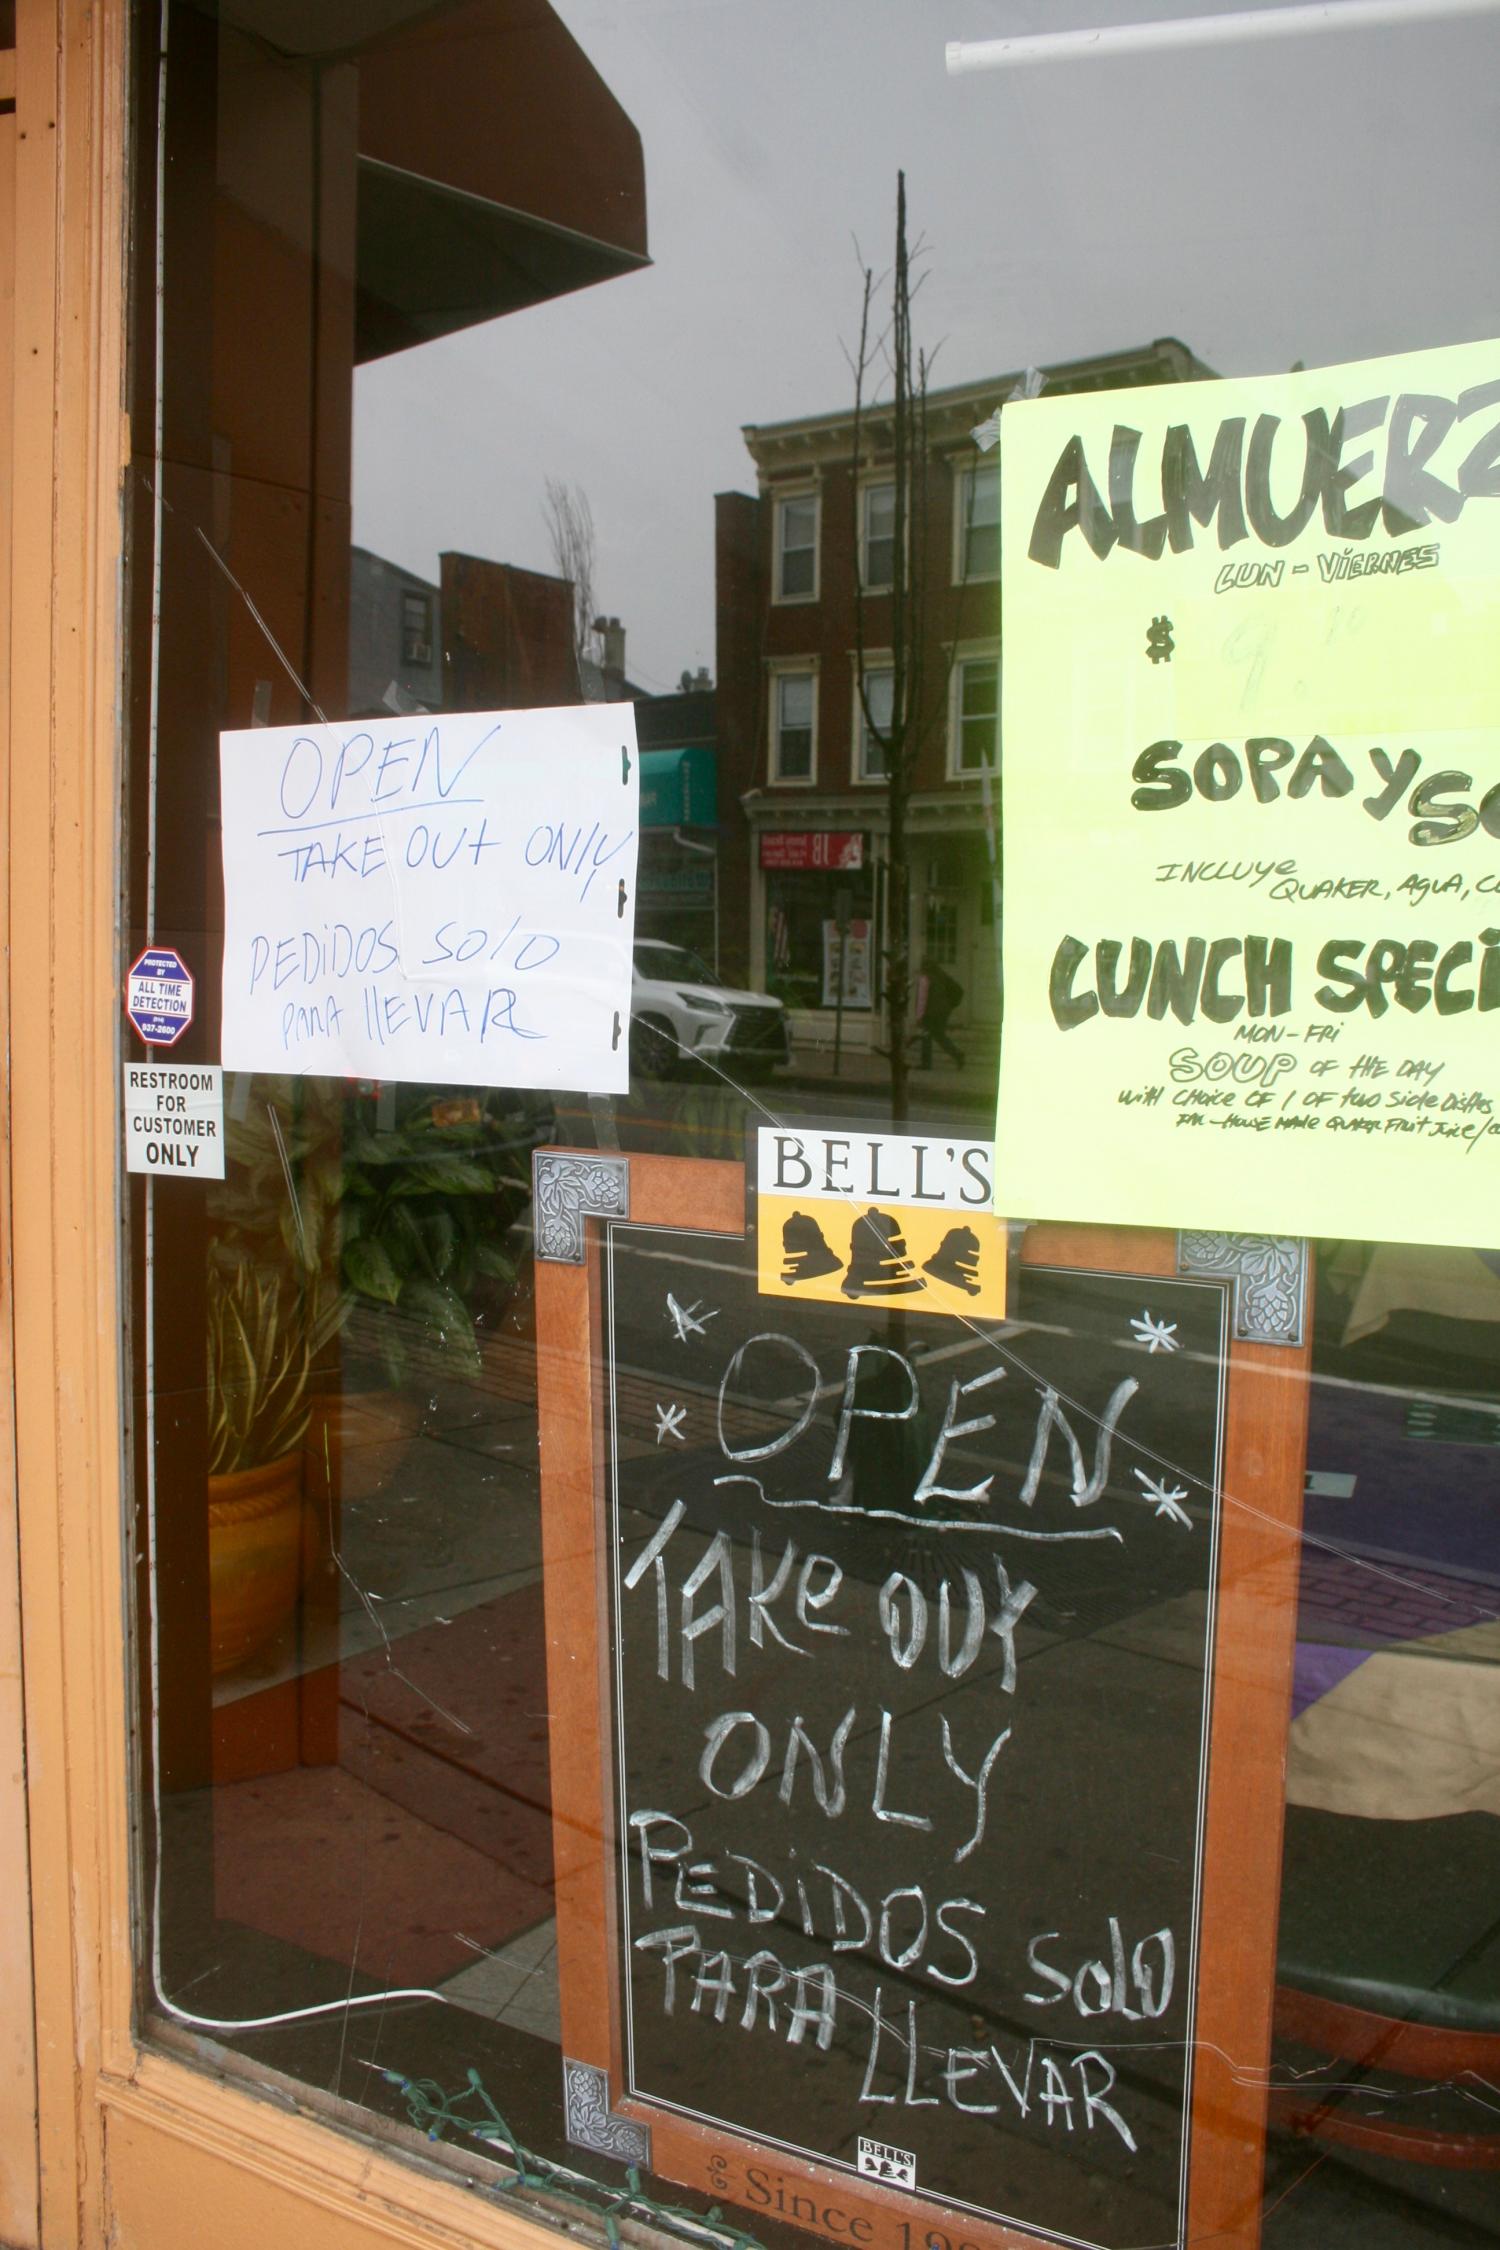 OPEN
TAKE OUT ONLY
PEDIDOS SOLO
PARA LLEVAR
PROTECTED
BY
ALL TIME
DETECTION
(914)
937-2600
RESTROOM
FOR
CUSTOMER
ONLY
ALMUERZ
LUN - VIERNES
$ 9.
SOPA Y SO
INCLUYE
QUAKER, AGUA, CO
LUNCH SPECI
MON-FRI
SOUP OF THE DAY
WITH CHOICE OF 1 OF TWO SIDE DISHES
HOUSE MADE QUAKER FRUIT JUICE/
BELL'S
OPEN
TAKE OUT
ONLY
PEDIDOS SOLO
PARA LLEVAR
BELL'S
Since 19